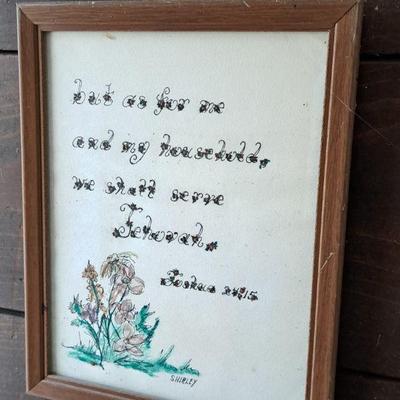 but as for me
and my household,
we shall serve
Jehovah.
Joshua 24:15
SHIRLEY